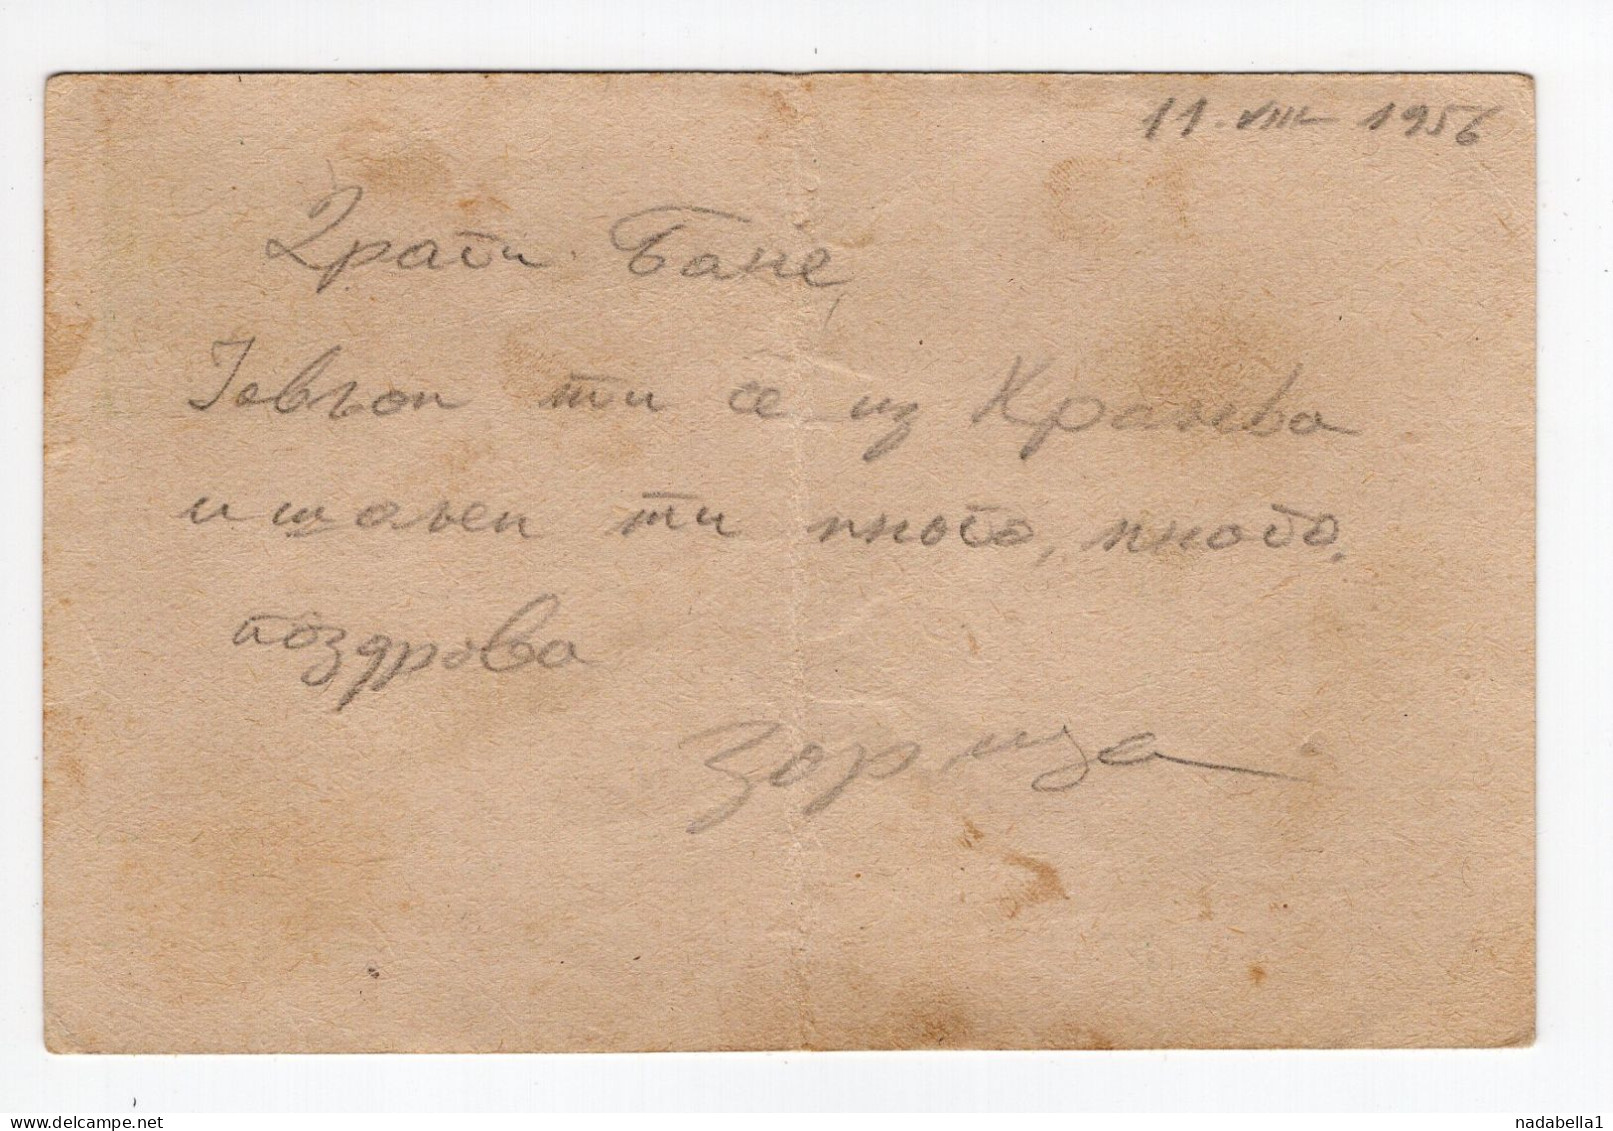 11. VIII 1956
Драги Бане,
Јављам ти се из Краљева
и шаљем ти много, много,
поздрава
Зорица
nadabella1